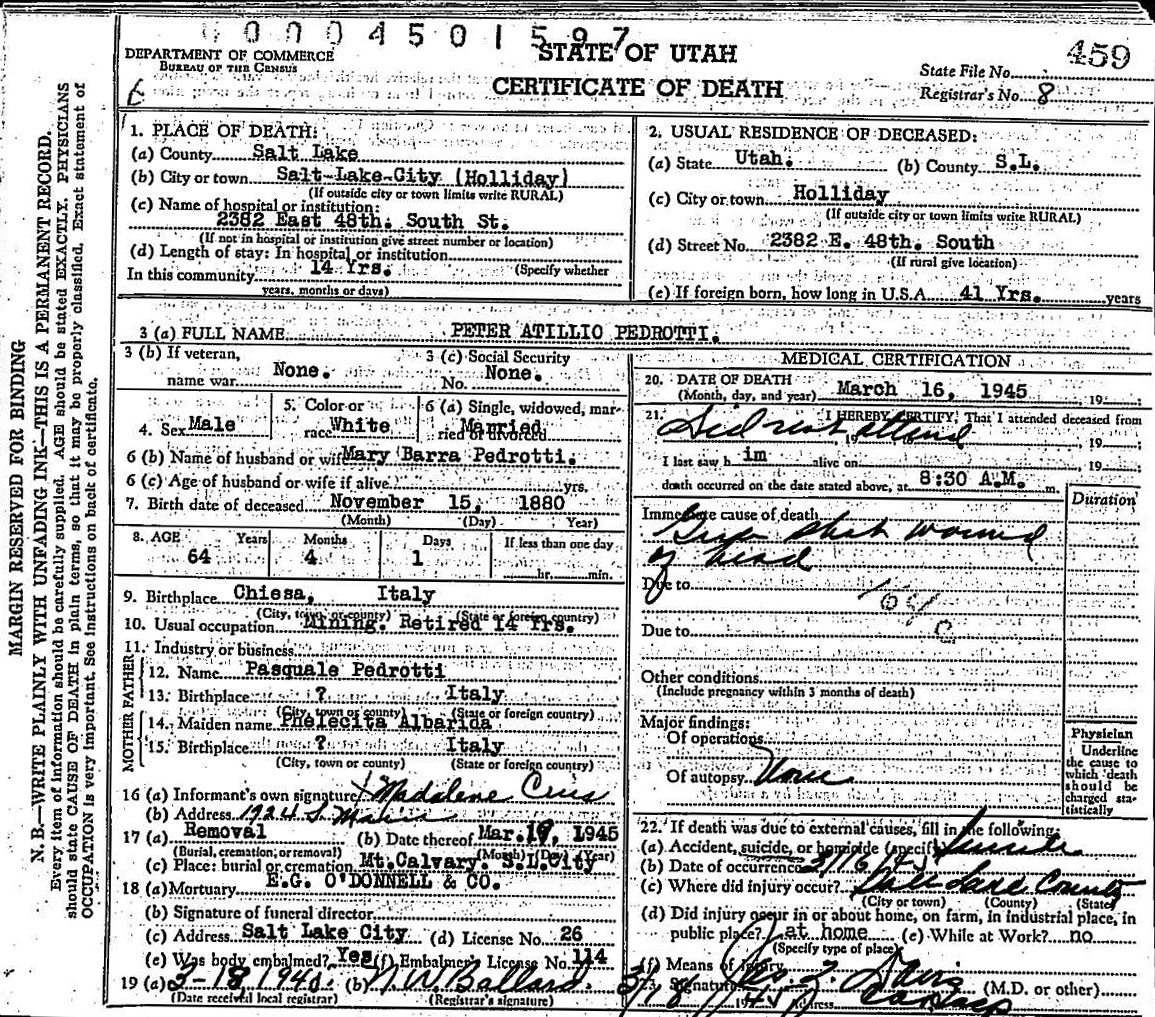 0004501597
459
DEPARTMENT OF COMMERCE
BUREAU OF THE CENSUS
STATE OF UTAH
CERTIFICATE OF DEATH
State File No.
Registrar's No. 8
MARGIN RESERVED FOR BINDING
N. B.—WRITE PLAINLY WITH UNFADING INK—THIS IS A PERMANENT RECORD.
Every item of information should be carefully supplied. AGE should be stated EXACTLY. PHYSICIANS
should state CAUSE OF DEATH in plain terms, so that it may be properly classified. Exact statement of
OCCUPATION is very important. See instructions on back of certificate.
1. PLACE OF DEATH:
(a) County Salt Lake
(b) City or town Salt-Lake-City (Holliday)
(If outside city or town limits write RURAL)
(c) Name of hospital or institution:
2382 East 48th. South St.
(If not in hospital or institution give street number or location)
(d) Length of stay: In hospital or institution
In this community 14 Yrs. (Specify whether
years, months or days)
2. USUAL RESIDENCE OF DECEASED:
(a) State Utah. (b) County S.L.
(c) City or town Holliday
(If outside city or town limits write RURAL)
(d) Street No. 2382 E. 48th. South
(If rural give location)
(e) If foreign born, how long in U.S.A. 41 Yrs. years
3 (a) FULL NAME PETER ATILLIO PEDROTTI.
3 (b) If veteran, name war None.
3 (c) Social Security No. None.
4. Sex Male
5. Color or race White
6 (a) Single, widowed, married or divorced Married
6 (b) Name of husband or wife Mary Barra Pedrotti.
6 (c) Age of husband or wife if alive yrs.
7. Birth date of deceased November 15, 1880
(Month) (Day) Year)
8. AGE Years Months Days If less than one day
64 4 1 hr. min.
9. Birthplace Chiesa, Italy
(City, town, or county) (State or foreign country)
10. Usual occupation Mining. Retired 14 Yrs.
11. Industry or business
FATHER
12. Name Pasquale Pedrotti
13. Birthplace ? Italy
(City, town or county) (State or foreign country)
MOTHER
14. Maiden name Phelecita Albarida
15. Birthplace ? Italy
(City, town or county) (State or foreign country)
16 (a) Informant's own signature Madalene
(b) Address 1924 S. Main
17 (a) Removal (b) Date thereof Mar. 19, 1945
(Burial, cremation, or removal) (Month) (Day) (Year)
(c) Place: burial or cremation Mt. Calvary. S.L. City
18 (a) Mortuary E.G. O'DONNELL & CO.
(b) Signature of funeral director
(c) Address Salt Lake City (d) License No. 26
(e) Was body embalmed? Yes (f) Embalmer's License No. 114
19 (a) 3-18-194 (b) N. W. Ballard.
(Date received local registrar) (Registrar's signature)
MEDICAL CERTIFICATION
20. DATE OF DEATH
(Month, day, and year) March 16, 1945 , 19 ;
21. I HEREBY CERTIFY, That I attended deceased from
Did not attend , 19 , 19 ;
I last saw h im alive on , 19 ;
death occurred on the date stated above, at 8:30 A.M. m.
Duration
Immediate cause of death
Gun shot wound
of head
Due to 164
Due to c
Other conditions
(Include pregnancy within 3 months of death)
Major findings:
Of operations
Of autopsy None
Physician
Underline
the cause to
which death
should be
charged sta-
tistically
22. If death was due to external causes, fill in the following:
(a) Accident, suicide, or homicide (specify) Suicide
(b) Date of occurrence 3/16/45
(c) Where did injury occur? Salt Lake County
(City or town) (County) (State)
(d) Did injury occur in or about home, on farm, in industrial place, in
public place? at home (e) While at Work? no
(Specify type of place)
(f) Means of injury
23. Signature Davis (M.D. or other)
3/18 1945 Address